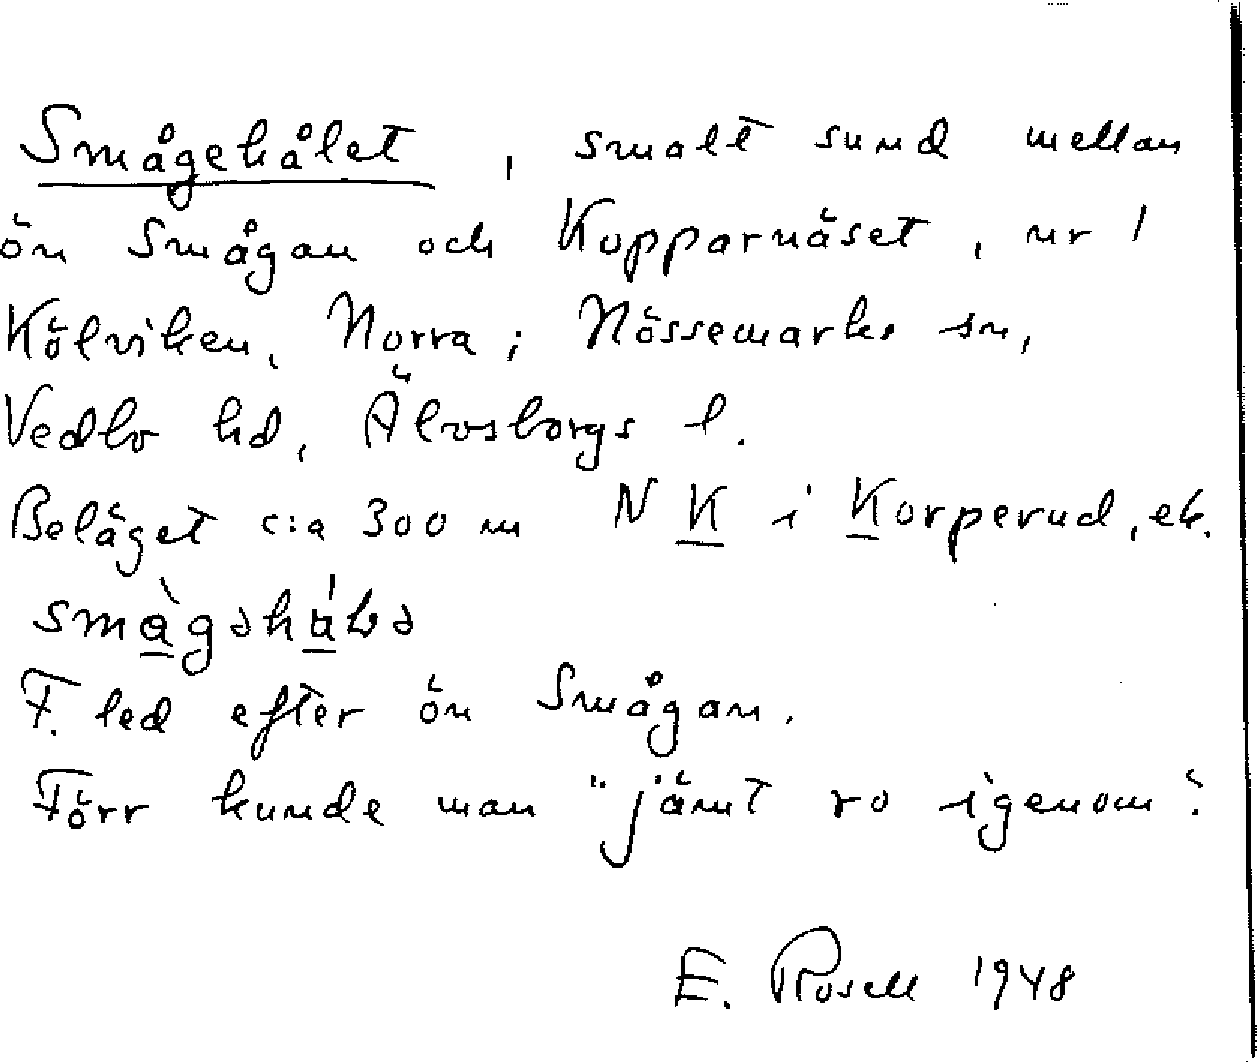 Smågehålet, smalt sund mellan
ön Smågan och Kopparnäset, nr 1
Kölviken, Norra; Nössemarks sn,
Vedbo hd, Älvsborgs l.
Beläget c:a 300 m N K i Korperud, ek.
F. led efter ön Smågan.
Förr kunde man "jämt ro igenom".
E. Rosell 1948